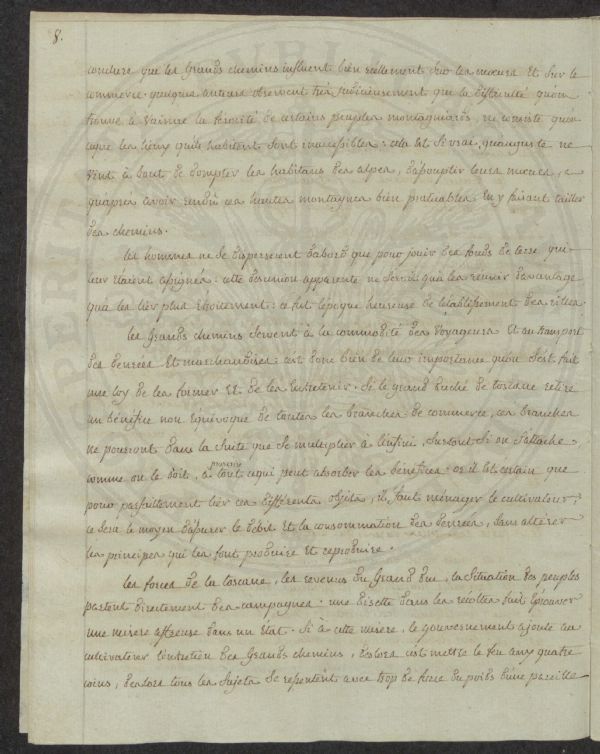 8.
conclure que les Grands chemins influent bien reellement sur les mœurs Et sur le
commerce. quelques auteurs observent très judicieusement que la difficulté qu'on
trouve à vaincre la ferocité de certains peuples montagnards, ne consiste qu'en
ce que les lieux qu'ils habitent sont inaccessibles: cela Est si vrai, qu'auguste ne
vint à bout de dompter les habitans des alpes, d'assouplir leurs mœurs,
qu'après avoir rendu ces hautes montagnes bien pratiquables En y faisant tailler
des chemins.
les hommes ne se disperserent d'abord que pour jouir des fonds de terre qui
leur Etoient assignés: cette desunion apparente ne servit qu'à les reunir davantage
qu'à les lier plus Etroitement: ce fut l'époque heureuse de l'etablissement des villes.
les Grands chemins servent à la commodité des Voyageurs Et au transport
des denrées Et marchandises: c'est donc bien de leur importance qu'on s'Est fait
une loy de les former Et de les Entretenir. Si le grand duché de toscane retire
un bénéfice non Equivoque de toutes les branches de commerce, ces branches
ne pourront dans la suite que se multiplier à l'infini, surtout si on s'attache,
comme on le doit, à proscrire tout ce qui peut absorber les bénéfices: or il Est certain que
pour parfaitement lier ces differents objets, il faut ménager le cultivateur;
ce sera le moyen d'assurer le débit Et la consommation des denrées, sans alterer
les principes qui les font produire Et reproduire.
les forces de la toscane, les revenus du Grand duc, la situation des peuples
partent directement des campagnes. une disette dans les récoltes fait Eprouver
une misere affreuse dans un Etat. Si à cette misere, le gouvernement ajoute aux
cultivateurs l'entretien des Grands chemins, deslors c'est mettre le feu aux quatre
coins, deslors tous les sujets se repentent avec trop de force du poids d'une pareille